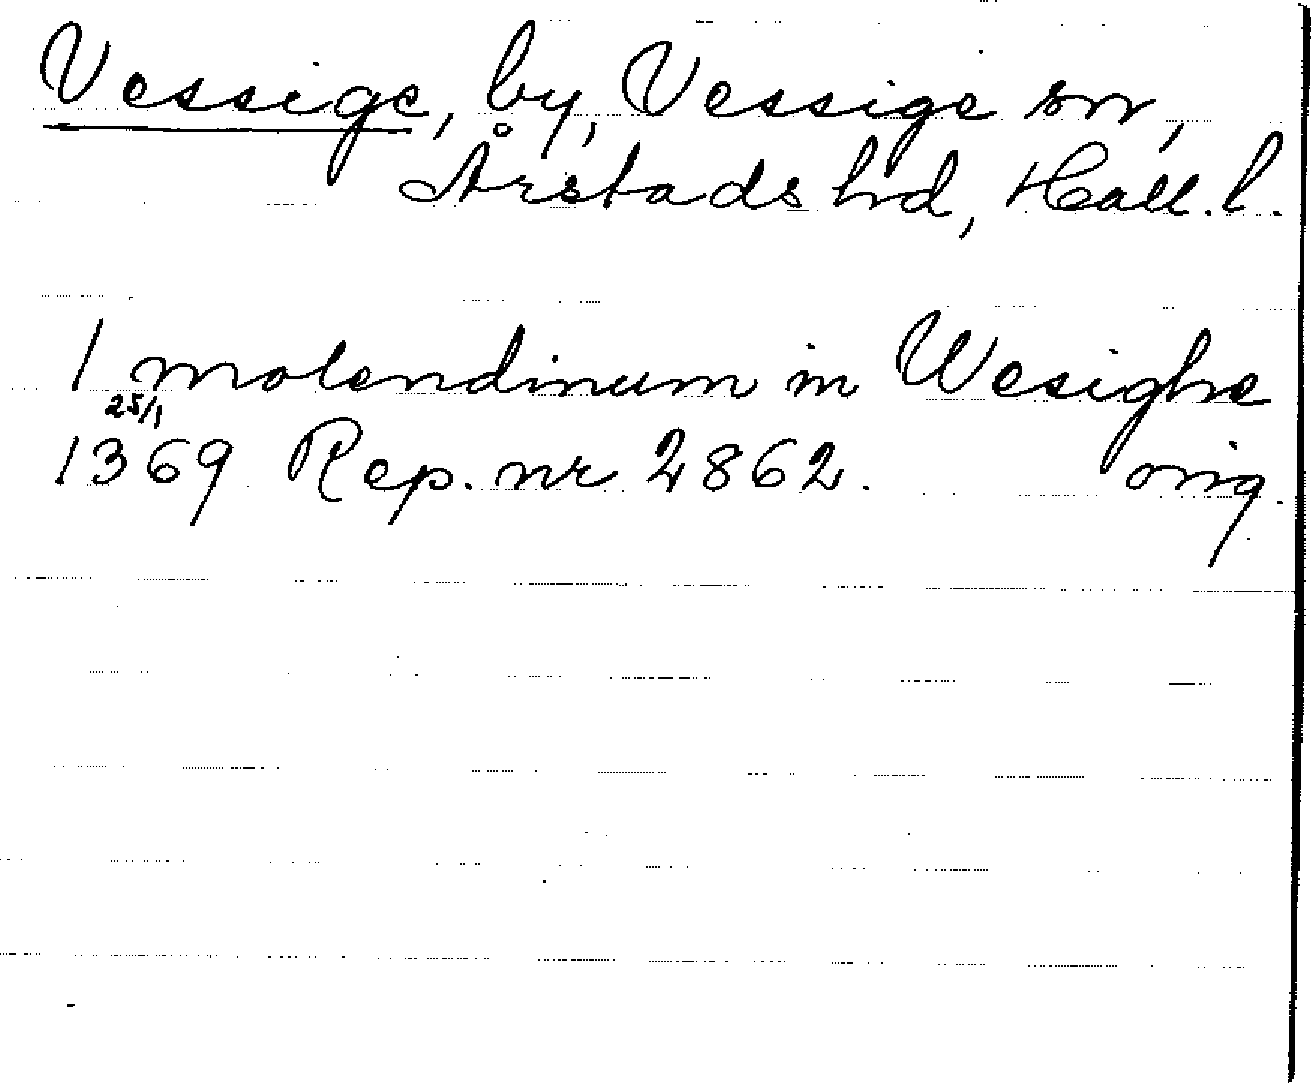 Vessige, by, Vessige sn,
Årstads hd, Hall. l.
1 molendinum in Wesighe
25/1
1369 Rep. nr 2862. orig.